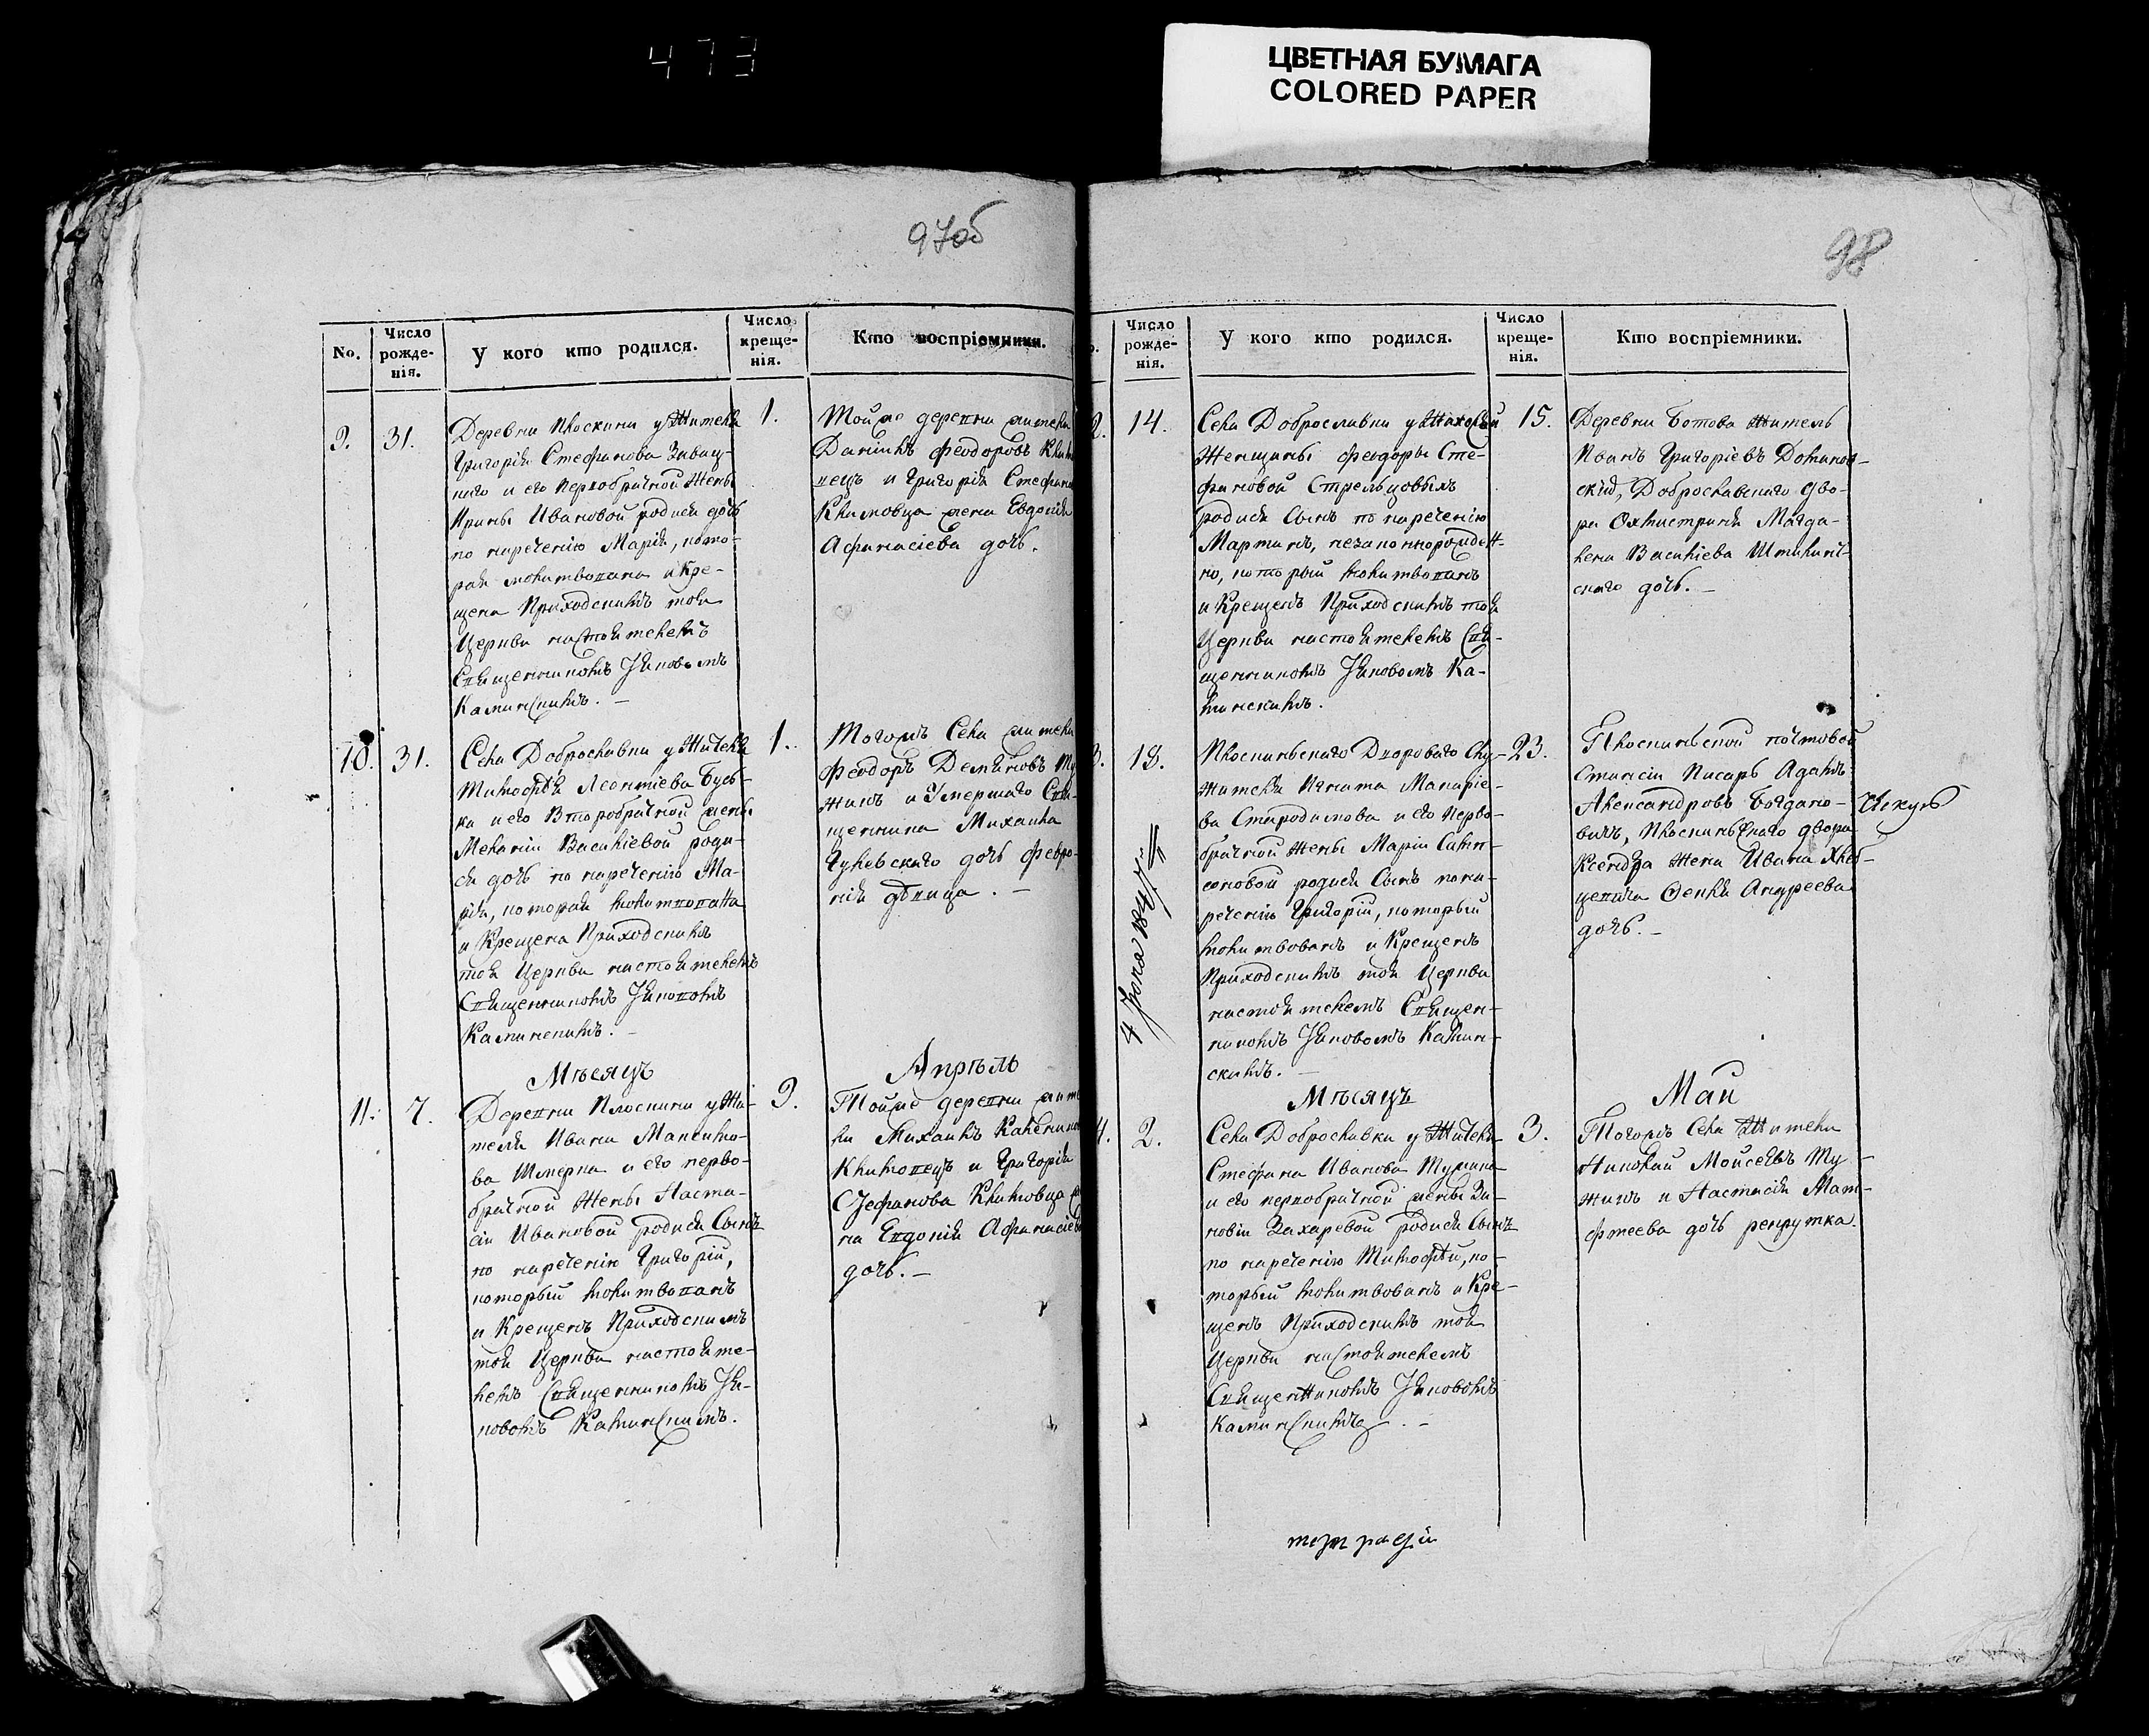 473
ЦВЕТНАЯ БУМАГА
COLORED PAPER
97об
No.
Число рожде-нія.
У кого кто родился.
Число креще-нія.
Кто воспріемники.
9.
31.
Деревни Плоскини у Жителя
Григорія Стефанова
и его первобрачной Жены
Ирины Ивановой родися дочь
по нареченію Марія, кото-
рая молитвована и Кре-
щена Приходскимъ тоя
Церкви настоятелемъ
Священникомъ Яковомъ
Каминскимъ. —
1.
Тойже деревни жители
Даніилъ Феодоровъ
и Григорія Стефана
Климовца жена Евдокія
Афанасіева дочь.
10.
31.
Села Доброславки у Жителя
Тимофѣя Леонтіева Бусь-
ка и его Второбрачной жены
Меланіи Василіевой роди-
ся дочь по нареченію Ма-
рія, которая молитвована
и Крещена Приходскимъ
тоя Церкви настоятелемъ
Священникомъ Яковомъ
Каминскимъ. —
1.
Тогожъ Села жители
Феодоръ Демяновъ
жикъ и Умершаго Свя-
щенника Михаила
дочь Февро-
нія дѣвица. —
Мѣсяцъ
Апрѣль
11.
7.
Деревни Плоскини у Жи-
теля Ивана Максимо-
ва Шмерка и его перво-
брачной Жены Наста-
сіи Ивановой родися Сынъ
по нареченію Григорій,
который молитвованъ
и Крещенъ Приходскимъ
тоя Церкви настояте-
лемъ Священникомъ Я-
ковомъ Каминскимъ.
9.
Тойже деревни жите
ли Михаилъ
Климовецъ и Григорія
Стефанова Климовца
на Евдокія Афанасіева
дочь. —
98
Число рожде-нія.
У кого кто родился.
Число креще-нія.
Кто воспріемники.
14.
Села Доброславки у
Женщины Феодоры Сте-
фановой Стрельцовыхъ
родися Сынъ по нареченію
Мартинъ, незаконнорожден-
но, который молитвованъ
и Крещенъ Приходскимъ тоя
Церкви настоятелемъ Свя-
щенникомъ Яковомъ Ка-
минскимъ.
15.
Деревни Ботова Житель
Иванъ Григоріевъ
скій, Доброславскаго дво-
ра Магда-
лена Василіева
скаго дочь. —
18.
Плоскинскаго Двороваго Слу-
жителя Игната Макаріе-
ва Стародимова и его Перво-
брачной Жены Маріи Самп-
соновой родися Сынъ по на-
реченію Григорій, который
молитвованъ и Крещенъ
Приходскимъ тоя Церкви
настоятелемъ Священ-
никомъ Яковомъ Камин-
скимъ. —
23.
Плоскинской почтовой
Стансіи Писарь Адамъ
Александровъ Богдано-
вичъ, Плоскинскаго двора
жена Ивана
Андреева
дочь. —
Мѣсяцъ
Май
2.
Села Доброславки у Жителя
Стефана Иванова
и его первобрачной жены Зи-
новіи Захаревой родися Сынъ
по нареченію Тимофѣй, ко-
торый молитвованъ и Кре-
щенъ Приходскимъ тоя
Церкви настоятелемъ
Священникомъ Яковомъ
Каминскимъ. —
3.
Тогожъ Села Жители
Николай Мойсеевъ Ту-
жикъ и Настасія Мат-
фтеева дочь рекрутка.